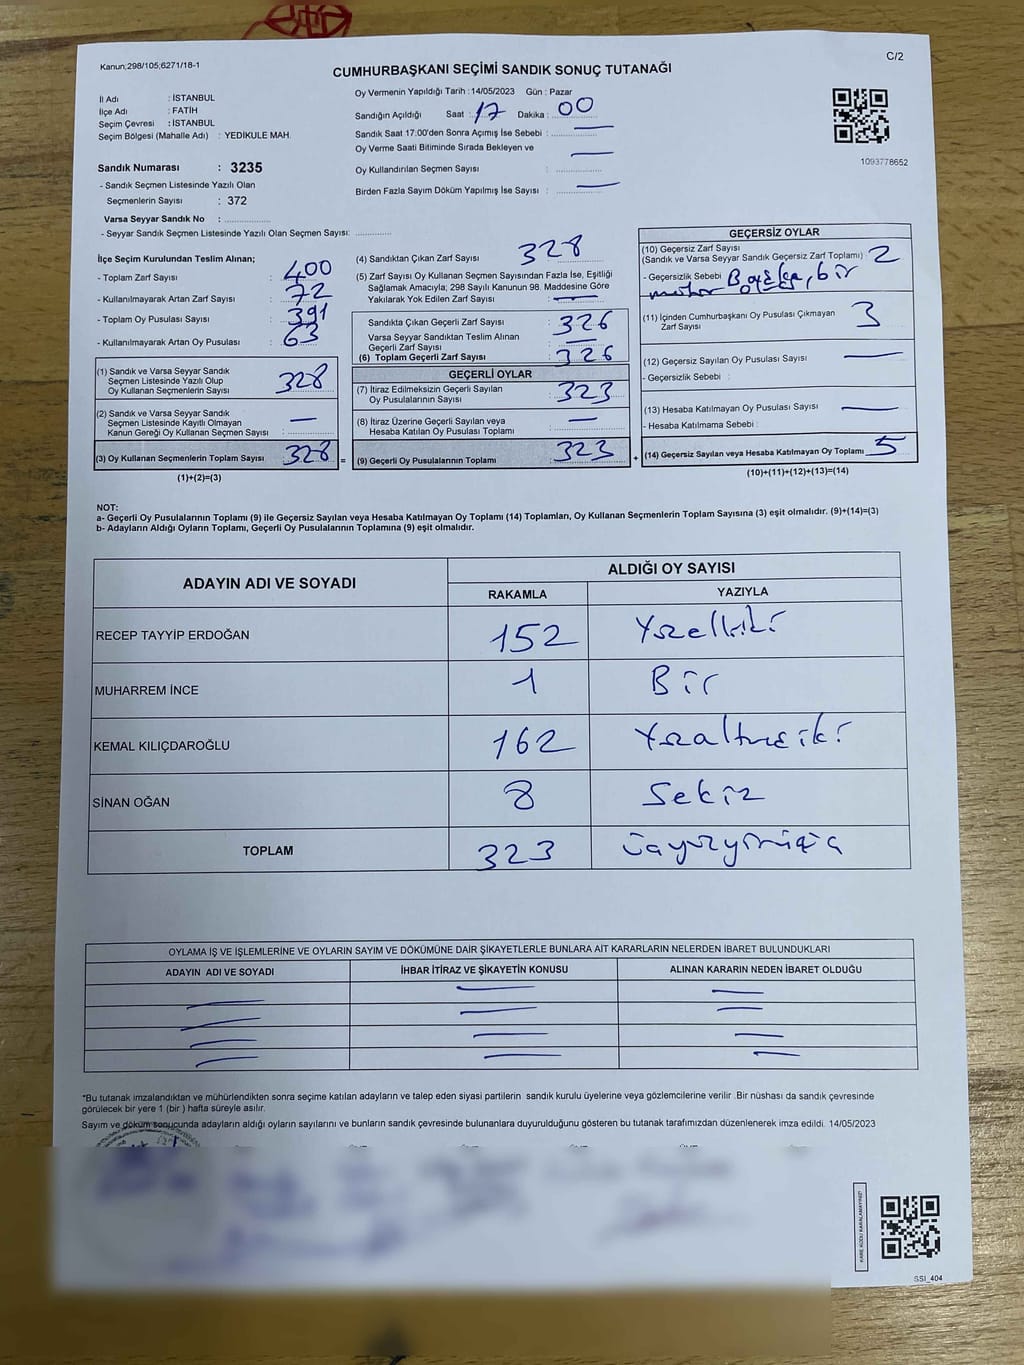 Kanun;298/105;6271/18-1
C/2
CUMHURBAŞKANI SEÇİMİ SANDIK SONUÇ TUTANAĞI
İl Adı : İSTANBUL
İlçe Adı : FATİH
Seçim Çevresi : İSTANBUL
Seçim Bölgesi (Mahalle Adı) : YEDİKULE MAH.
Sandık Numarası : 3235
- Sandık Seçmen Listesinde Yazılı Olan
Seçmenlerin Sayısı : 372
Varsa Seyyar Sandık No :
- Seyyar Sandık Seçmen Listesinde Yazılı Olan Seçmen Sayısı:
Oy Vermenin Yapıldığı Tarih : 14/05/2023 Gün : Pazar
Sandığın Açıldığı Saat : 17 Dakika : 00
Sandık Saat 17:00'den Sonra Açımış İse Sebebi : —
Oy Verme Saati Bitiminde Sırada Bekleyen ve —
Oy Kullandırılan Seçmen Sayısı :
Birden Fazla Sayım Döküm Yapılmış İse Sayısı : —
1093778652
İlçe Seçim Kurulundan Teslim Alınan;
- Toplam Zarf Sayısı : 400
- Kullanılmayarak Artan Zarf Sayısı : 72
- Toplam Oy Pusulası Sayısı : 391
- Kullanılmayarak Artan Oy Pusulası : 63
(1) Sandık ve Varsa Seyyar Sandık
Seçmen Listesinde Yazılı Olup
Oy Kullanan Seçmenlerin Sayısı : 328
(2) Sandık ve Varsa Seyyar Sandık
Seçmen Listesinde Kayıtlı Olmayan
Kanun Gereği Oy Kullanan Seçmen Sayısı : —
(3) Oy Kullanan Seçmenlerin Toplam Sayısı : 328 =
(1)+(2)=(3)
(4) Sandıktan Çıkan Zarf Sayısı : 328
(5) Zarf Sayısı Oy Kullanan Seçmen Sayısından Fazla İse, Eşitliği
Sağlamak Amacıyla; 298 Sayılı Kanunun 98. Maddesine Göre
Yakılarak Yok Edilen Zarf Sayısı : —
Sandıkta Çıkan Geçerli Zarf Sayısı : 326
Varsa Seyyar Sandıktan Teslim Alınan
Geçerli Zarf Sayısı : —
(6) Toplam Geçerli Zarf Sayısı : 326
GEÇERLİ OYLAR
(7) İtiraz Edilmeksizin Geçerli Sayılan
Oy Pusulalarının Sayısı : 323
(8) İtiraz Üzerine Geçerli Sayılan veya
Hesaba Katılan Oy Pusulası Toplamı : —
(9) Geçerli Oy Pusulalarının Toplamı : 323 +
GEÇERSİZ OYLAR
(10) Geçersiz Zarf Sayısı
(Sandık ve Varsa Seyyar Sandık Geçersiz Zarf Toplamı) : 2
- Geçersizlik Sebebi : bir
(11) İçinden Cumhurbaşkanı Oy Pusulası Çıkmayan
Zarf Sayısı : 3
(12) Geçersiz Sayılan Oy Pusulası Sayısı : —
- Geçersizlik Sebebi :
(13) Hesaba Katılmayan Oy Pusulası Sayısı : —
- Hesaba Katılmama Sebebi :
(14) Geçersiz Sayılan veya Hesaba Katılmayan Oy Toplamı : 5
(10)+(11)+(12)+(13)=(14)
NOT:
a- Geçerli Oy Pusulalarının Toplamı (9) ile Geçersiz Sayılan veya Hesaba Katılmayan Oy Toplamı (14) Toplamları, Oy Kullanan Seçmenlerin Toplam Sayısına (3) eşit olmalıdır. (9)+(14)=(3)
b- Adayların Aldığı Oyların Toplamı, Geçerli Oy Pusulalarının Toplamına (9) eşit olmalıdır.
ADAYIN ADI VE SOYADI
ALDIĞI OY SAYISI
RAKAMLA YAZIYLA
RECEP TAYYİP ERDOĞAN 152 Yüzelliiki
MUHARREM İNCE 1 Bir
KEMAL KILIÇDAROĞLU 162 Yüzaltmışiki
SİNAN OĞAN 8 Sekiz
TOPLAM 323 Üçyüzyirmiüç
OYLAMA İŞ VE İŞLEMLERİNE VE OYLARIN SAYIM VE DÖKÜMÜNE DAİR ŞİKAYETLERLE BUNLARA AİT KARARLARIN NELERDEN İBARET BULUNDUKLARI
ADAYIN ADI VE SOYADI İHBAR İTİRAZ VE ŞİKAYETİN KONUSU ALINAN KARARIN NEDEN İBARET OLDUĞU
*Bu tutanak imzalandıktan ve mühürlendikten sonra seçime katılan adayların ve talep eden siyasi partilerin sandık kurulu üyelerine veya gözlemcilerine verilir .Bir nüshası da sandık çevresinde
görülecek bir yere 1 (bir ) hafta süreyle asılır.
Sayım ve döküm sonucunda adayların aldığı oyların sayılarını ve bunların sandık çevresinde bulunanlara duyurulduğunu gösteren bu tutanak tarafımızdan düzenlenerek imza edildi. 14/05/2023
KARE KODU KARALAMAYINIZ!
SSI_404